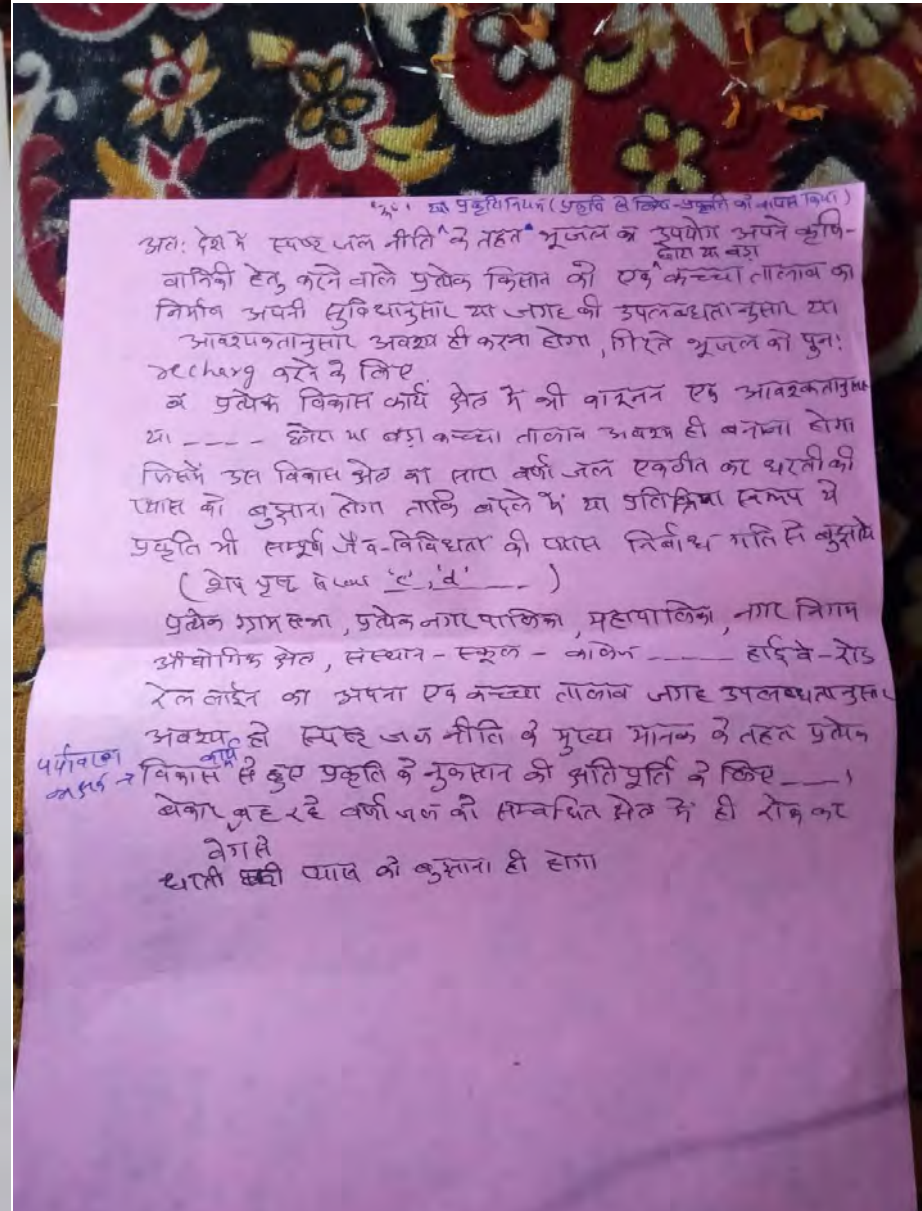 या प्रकृति नियम (प्रकृति से लिया-प्रकृति को वापस किया)
अतः देश में स्पष्ट जल नीति ^ के तहत ^ भूजल का उपयोग अपने कृषि-
छोटा या बड़ा
वानिकी हेतु करने वाले प्रत्येक किसान को एक ^ कच्चा तालाब का
निर्माण अपनी सुविधानुसार या जगह की उपलब्धतानुसार या
आवश्यकतानुसार अवश्य ही करना होगा, गिरते भूजल को पुनः
recharg करने के लिए
व प्रत्येक विकास कार्य क्षेत्र में भी एक
या ---- छोटा या बड़ा कच्चा तालाब अवश्य ही बनाना होगा
जिसमें उस विकास क्षेत्र का सारा वर्षा जल एकत्रीत कर धरती की
प्यास को बुझाना होगा ताकि बदले में या प्रतिक्रिया स्वरूप ये
प्रकृति भी सम्पूर्ण जैव-विविधता की प्यास निर्बाध गति से बुझाये
(शेष पृष्ट 'c','d' ---)
प्रत्येक ग्राम सभा, प्रत्येक नगर पालिका, महापालिका, नगर निगम
औद्योगिक क्षेत्र, संस्थान - स्कूल - कालेज ---- हाईवे - रोड
रेल लाईन का अपना एक कच्चा तालाब जगह उपलब्धतानुसार
अवश्य हो स्पष्ट जल नीति के मुख्य मानक के तहत प्रत्येक
पर्यावरण
विकास कार्य से हुए प्रकृति के नुकसान की क्षतिपूर्ति के लिए ---,
बेकार बह रहे वर्षा जल को सम्बंधित क्षेत्र में ही रोक कर
वेग से
धरती प्यास को बुझाना ही होगा